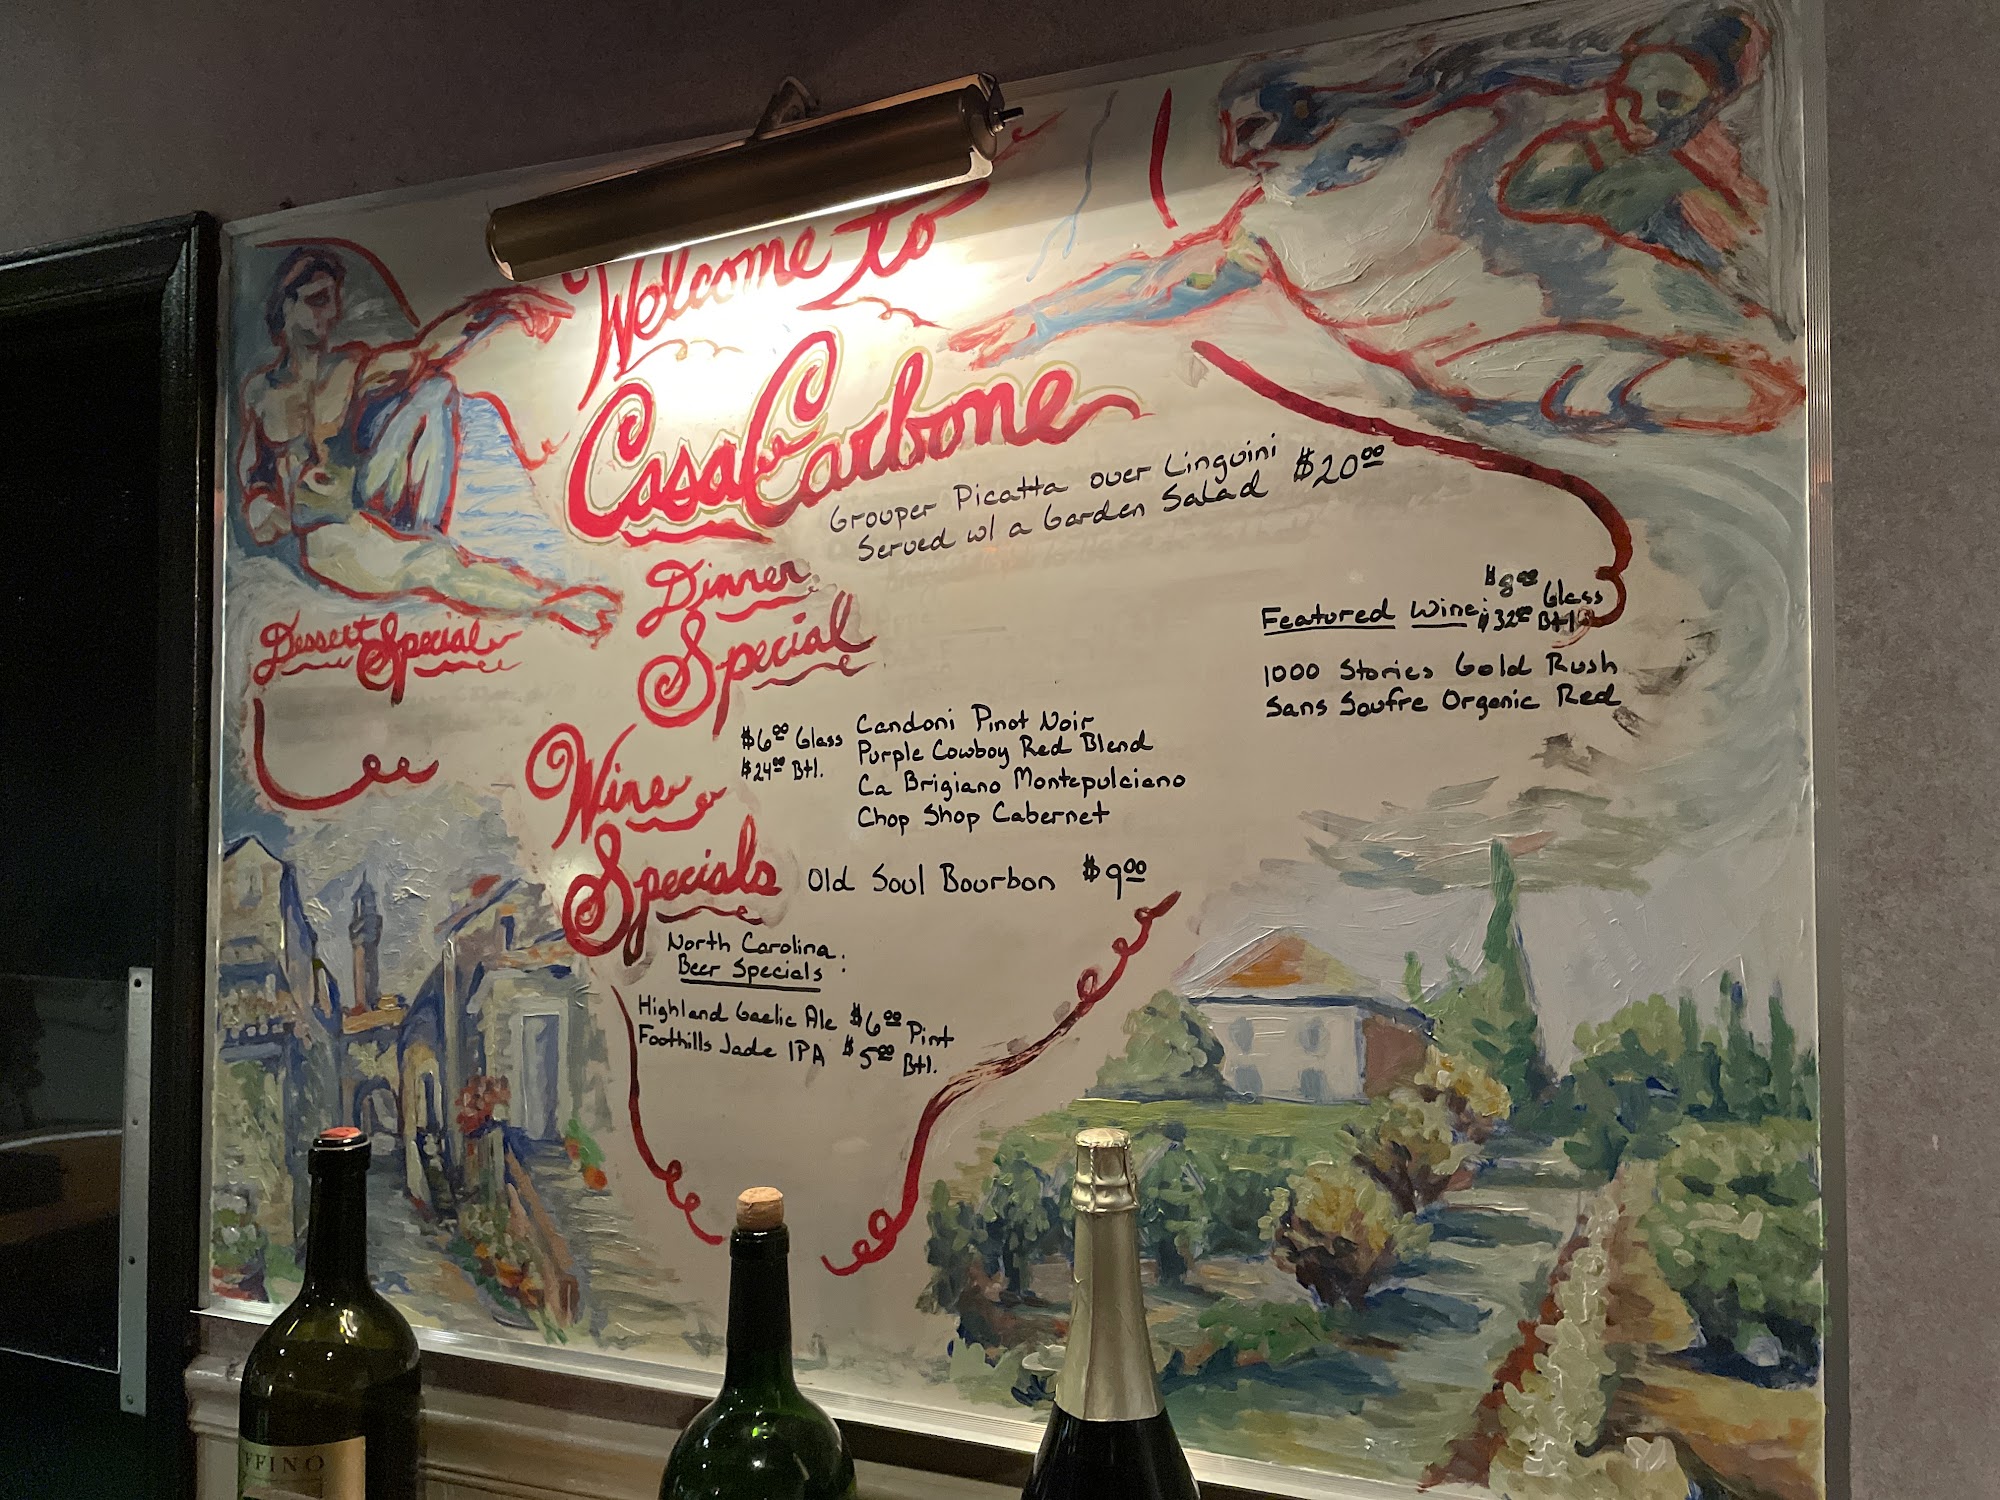 Welcome to
Casa Carbone
Grouper Picatta over Linguini
Served w/ a Garden Salad $20.00
Dinner
Special
Dessert Special
Featured Wine: $8.00 Glass
$32.00 Btl.
1000 Stories Gold Rush
Sans Soufre Organic Red
Wine
Specials
$6.00 Glass
$24.00 Btl.
Candoni Pinot Noir
Purple Cowboy Red Blend
Ca Brigiano Montepulciano
Chop Shop Cabernet
Old Soul Bourbon $9.00
North Carolina
Beer Specials:
Highland Gaelic Ale $6.00 Pint
Foothills Jade IPA $5.00 Btl.
FFINO